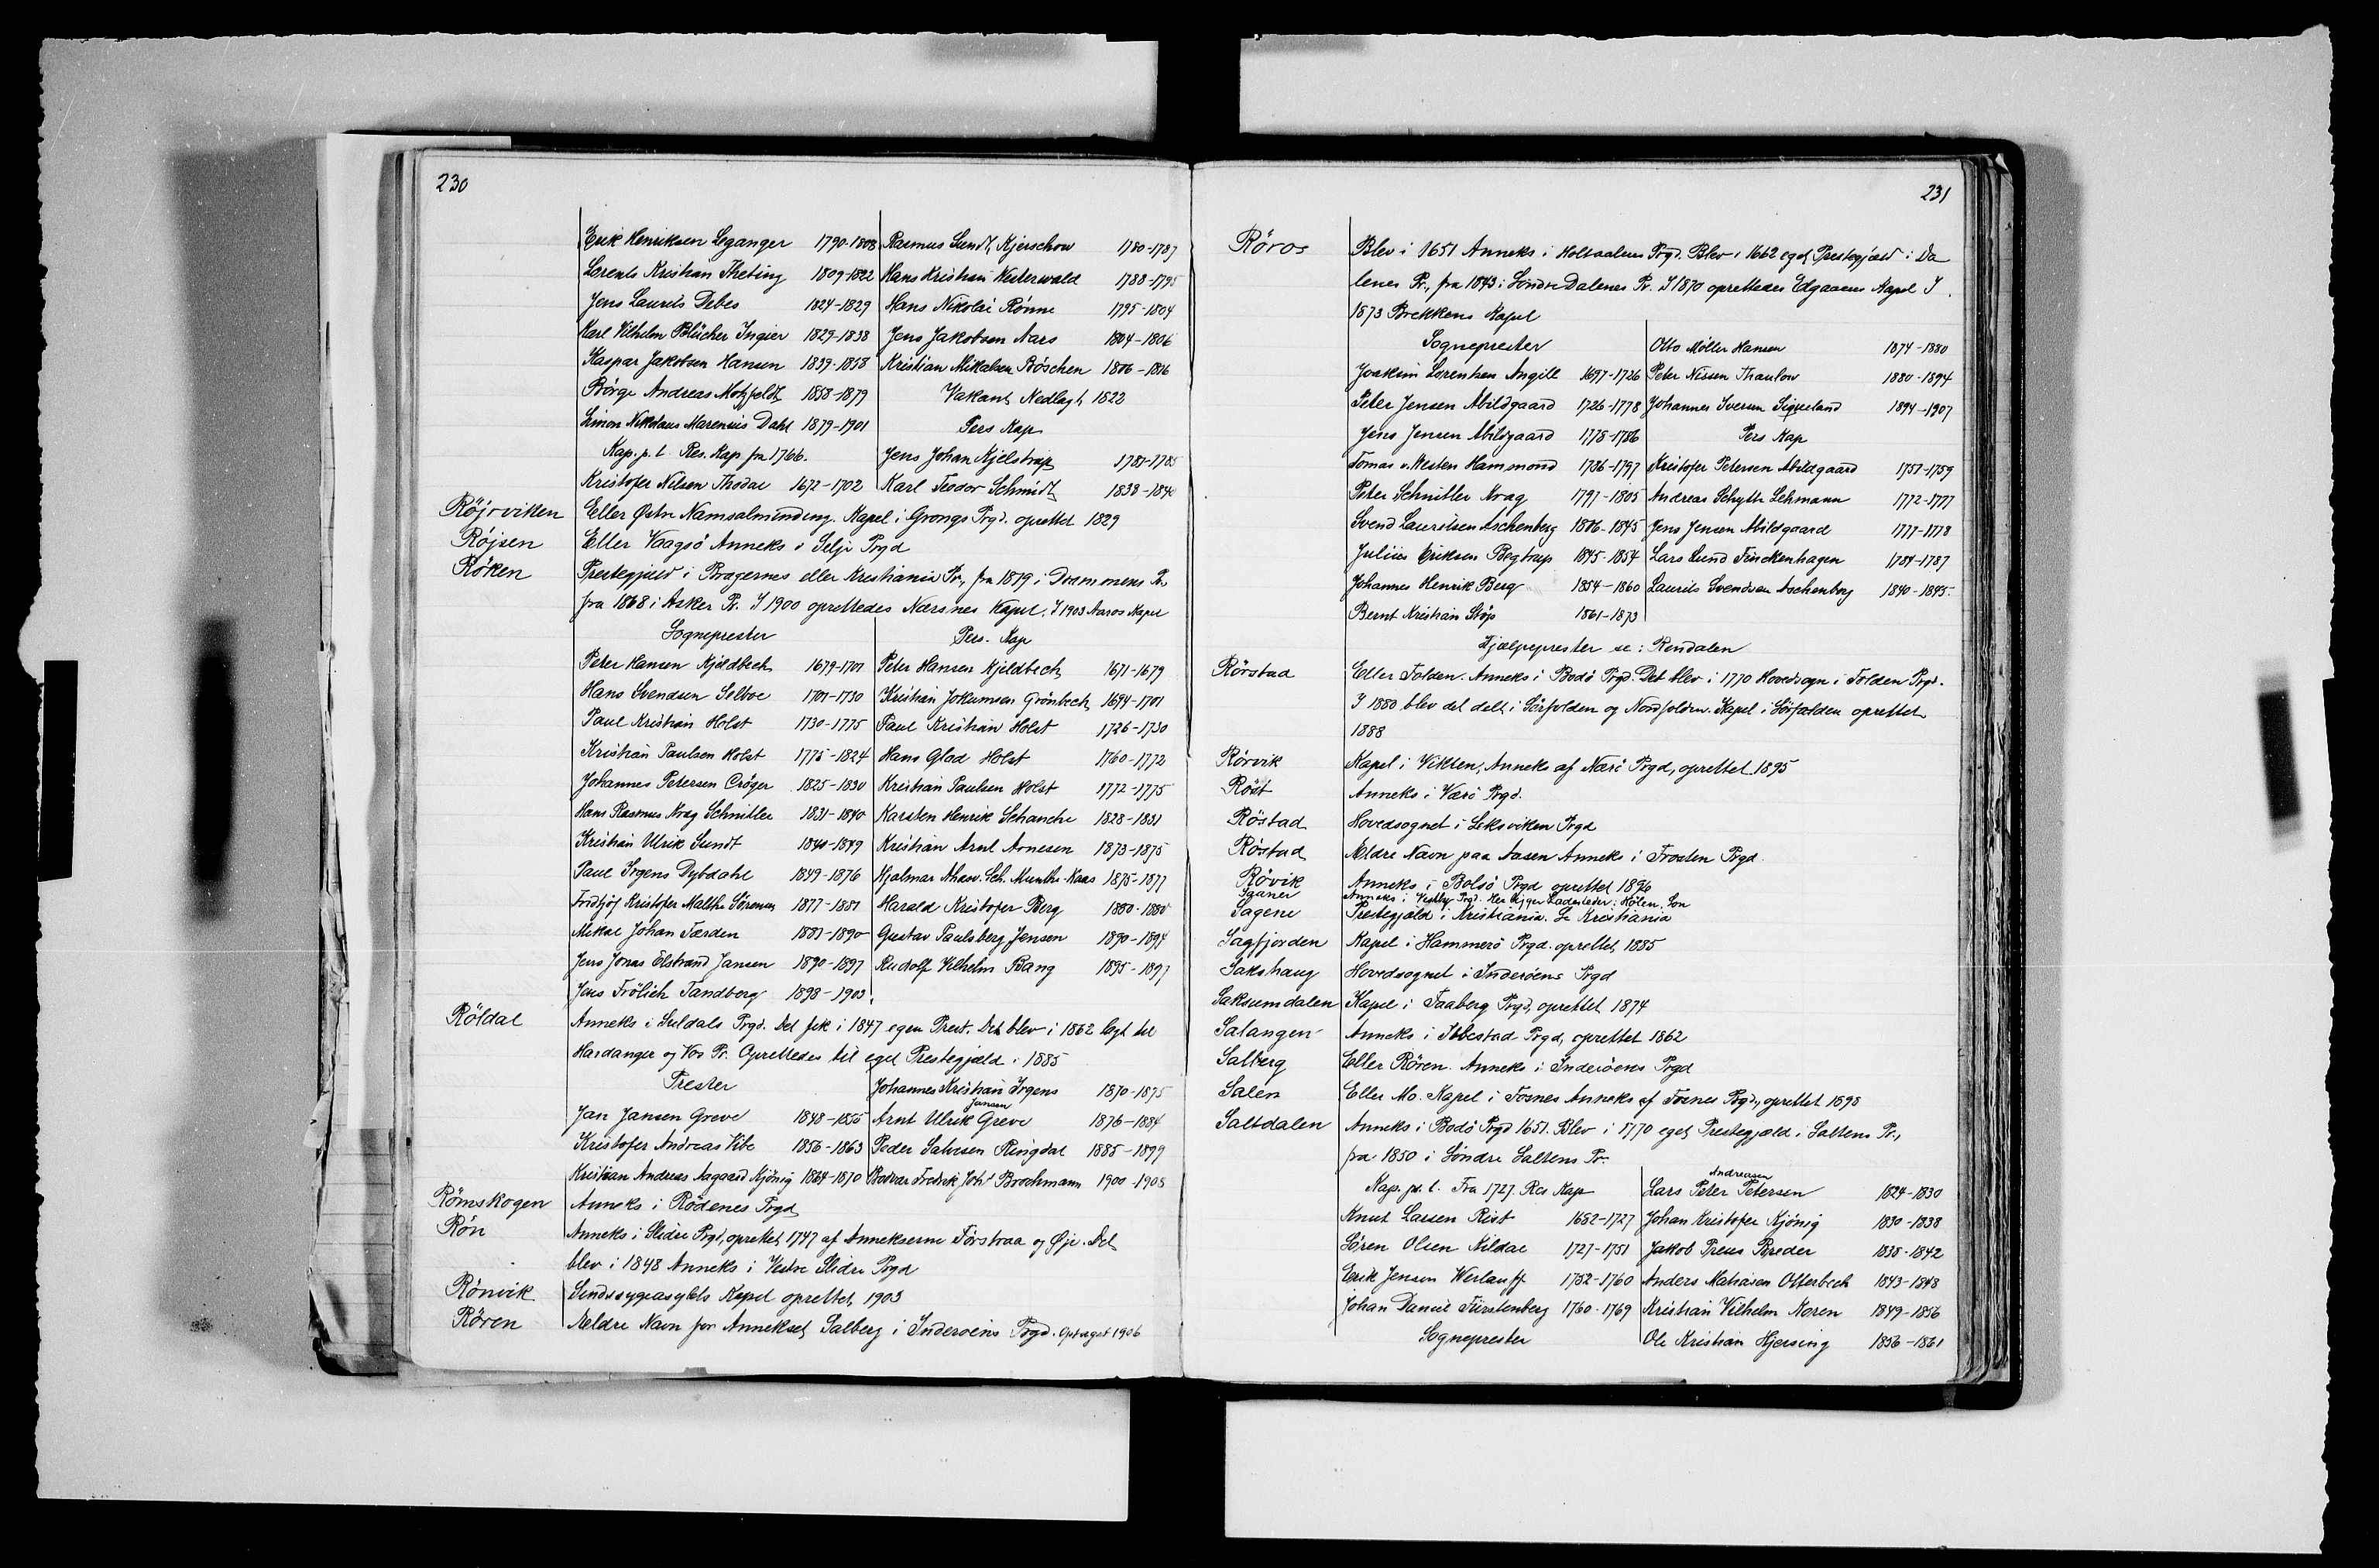 230
Erik Henriksen Leganger 1790-1808
Lorents Kristian Theting 1809-1822
Jens Laurits Debes 1824-1829
Karl Vilhelm Blücher Ingier 1829-1838
Kaspar Jakobsen Hansen 1839-1858
Börge Andreas Motzfeldt 1858-1879
Simon Nikolaus Marensius Dahl 1879-1901
Kap. p. l. Res. Kap. fra 1766.
Kristofer Nilsen Thodal 1672-1702
Rasmus Sundt Kjerschow 1780-1787
Hans Kristian Westerwald 1788-1795
Hans Nikolai Rönne 1795-1804
Jens Jakobsen Aars 1804-1806
Kristian Mikalsen Böschen 1806-1816
Vakant, Nedlagt 1822
Pers Kap
Jens Johan Kjelstrup 1781-1785
Karl Teodor Schmidt 1838-1840
Röjrviken Eller Østre Namsalminding. Kapel i Grongs Prgd. oprettet 1829
Röjsen Eller Vaagsö Anneks i Selje Prgd
Röken Prestegjeld i Bragernes eller Kristiania Pr., fra 1819 i Drammens Pr.
fra 1868 i Asker Pr. I 1900 oprettedes Nærsnes Kapel. I 1903 Aaros Kapel
Sogneprester
Peter Hansen Kjeldbech 1679-1701
Hans Svendsen Selboe 1701-1730
Paul Kristian Holst 1730-1775
Kristian Paulsen Holst 1775-1824
Johannes Petersen Cröger 1825-1830
Hans Rasmus Krag Schnitler 1831-1840
Kristian Ulrik Sundt 1840-1849
Paul Irgens Dybdahl 1849-1876
Fridtjöf Kristofer Malthe Sörensen 1877-1881
Mikal Johan Færden 1883-1890
Jens Jonas Elstrand Jansen 1890-1897
Jens Frölich Tandberg 1898-1903
Pers. Kap
Peter Hansen Kjeldbech 1671-1679
Kristian Jokumsen Grönbech 1694-1701
Paul Kristian Holst 1726-1730
Hans Glad Holst 1760-1772
Kristian Paulsen Holst 1772-1775
Karsten Henrik Schanche 1828-1831
Kristian Arnt Arnesen 1873-1875
Hjalmar Ahasv. Sch. Munthe-Kaas 1875-1877
Harald Kristofer Berg 1880-1880
Gustav Paulsberg Jensen 1890-1894
Rudolf Vilhelm Bang 1895-1897
Röldal Anneks i Suldals Prgd. Det fik i 1847 egen Prest. Det blev i 1862 lagt til
Hardanger og Vos Pr. Oprettedes til eget Prestegjæld i 1885
Prester
Jan Jansen Greve 1848-1855
Kristofer Andreas Vibe 1856-1863
Kristian Andreas Aagaard Kjönig 1864-1870
Johannes Kristian Irgens 1870-1875
Jansen
Arnt Ulrik Greve 1876-1884
Peder Salvesen Ringdal 1885-1899
Bodvar Fredrik Joh. Brochmann 1900-1908
Römskogen Anneks i Rödenes Prgd
Rön Anneks i Slidre Prgd, oprettet 1747 af Annekserne Förstraa og Øje. Det
blev i 1848 Anneks i Vestre Slidre Prgd
Rönvik Sindssygeasylets Kapel oprettet 1903
Rören Ældre Navn for Annekset Salberg i Inderøens Prgd. Optaget 1906
231
Röros Blev i 1651 Anneks i Holtaalens Prgd. Blev i 1662 eget Prestegjæld i Da
lenes Pr., fra 1843 i Söndre Dalenes Pr. I 1870 oprettedes Edgaaens Kapel I
1873 Brekkens Kapel
Sogneprester
Joakim Lorentsen Angell 1697-1726
Peter Jensen Abildgaard 1726-1778
Jens Jensen Abildgaard 1778-1786
Tomas v. Westen Hammond 1786-1797
Peter Schnitler Krag 1797-1805
Svend Lauritsen Aschenberg 1806-1845
Julius Eriksen Begtrup 1845-1854
Johannes Henrik Berg 1854-1860
Bernt Kristian Stöp 1861-1873
Otto Möller Hansen 1874-1880
Peter Nissen Thaulow 1880-1894
Johannes Iversen Siqveland 1894-1907
Pers Kap
Kristofer Petersen Abildgaard 1757-1759
Andreas Schytte Lehmann 1772-1777
Jens Jensen Abildgaard 1777-1778
Lars Lund Finckenhagen 1784-1787
Laurits Svendsen Aschenberg 1840-1845.
Hjælpeprester se: Rendalen
Rörstad Eller Folden. Anneks i Bodö Prgd. Det blev i 1770 Hovedsogn i Folden Prgd.
I 1880 blev det delt i Sörfolden og Nordfolden. Kapel i Sörfolden oprettet
1888
Rörvik Kapel i Vikten, Anneks af Nærö Prgd, oprettet 1895
Röst Anneks i Værö Prgd.
Röstad Hovedsognet i Leksviken Prgd
Röstad Ældre Navn paa Aasen Anneks i Frosten Prgd.
Rövik Anneks i Bolsö Prgd oprettet 1896
Saaner Anneks i Vestby Prgd. Her ligger Ladesteder: Hölen, Son
Sagene Prestegjæld i Kristiania. Se Kristiania
Sagfjorden Kapel i Hammerö Prgd. oprettet 1885
Sakshaug Hovedsognet i Inderöens Prgd
Saksumdalen Kapel i Faaberg Prgd, oprettet 1874
Salangen Anneks i Ibbestad Prgd, oprettet 1862
Salberg Eller Rören. Anneks i Inderöens Prgd
Salen Eller Mo. Kapel i Fosnes Anneks af Fosnes Prgd., oprettet 1898
Saltdalen Anneks i Bodö Prgd 1651. Blev i 1770 eget Prestegjæld i Saltens Pr.,
fra 1850 i Söndre Saltens Pr.
Kap. p. l. Fra 1727. Res Kap
Knut Larsen Rist 1682-1727
Sören Olsen Nildal 1727-1751
Erik Jensen Werlauff 1752-1760
Johan Daniel Fürstenberg 1760-1769
Sogneprester
Andreasen
Lars Peter Petersen 1824-1830
Johan Kristofer Kjönig 1830-1838
Jakob Preus Breder 1838-1842
Anders Matiasen Otterbech 1843-1848
Kristian Vilhelm Koren 1849-1856
Ole Kristian Hjersing 1856-1861